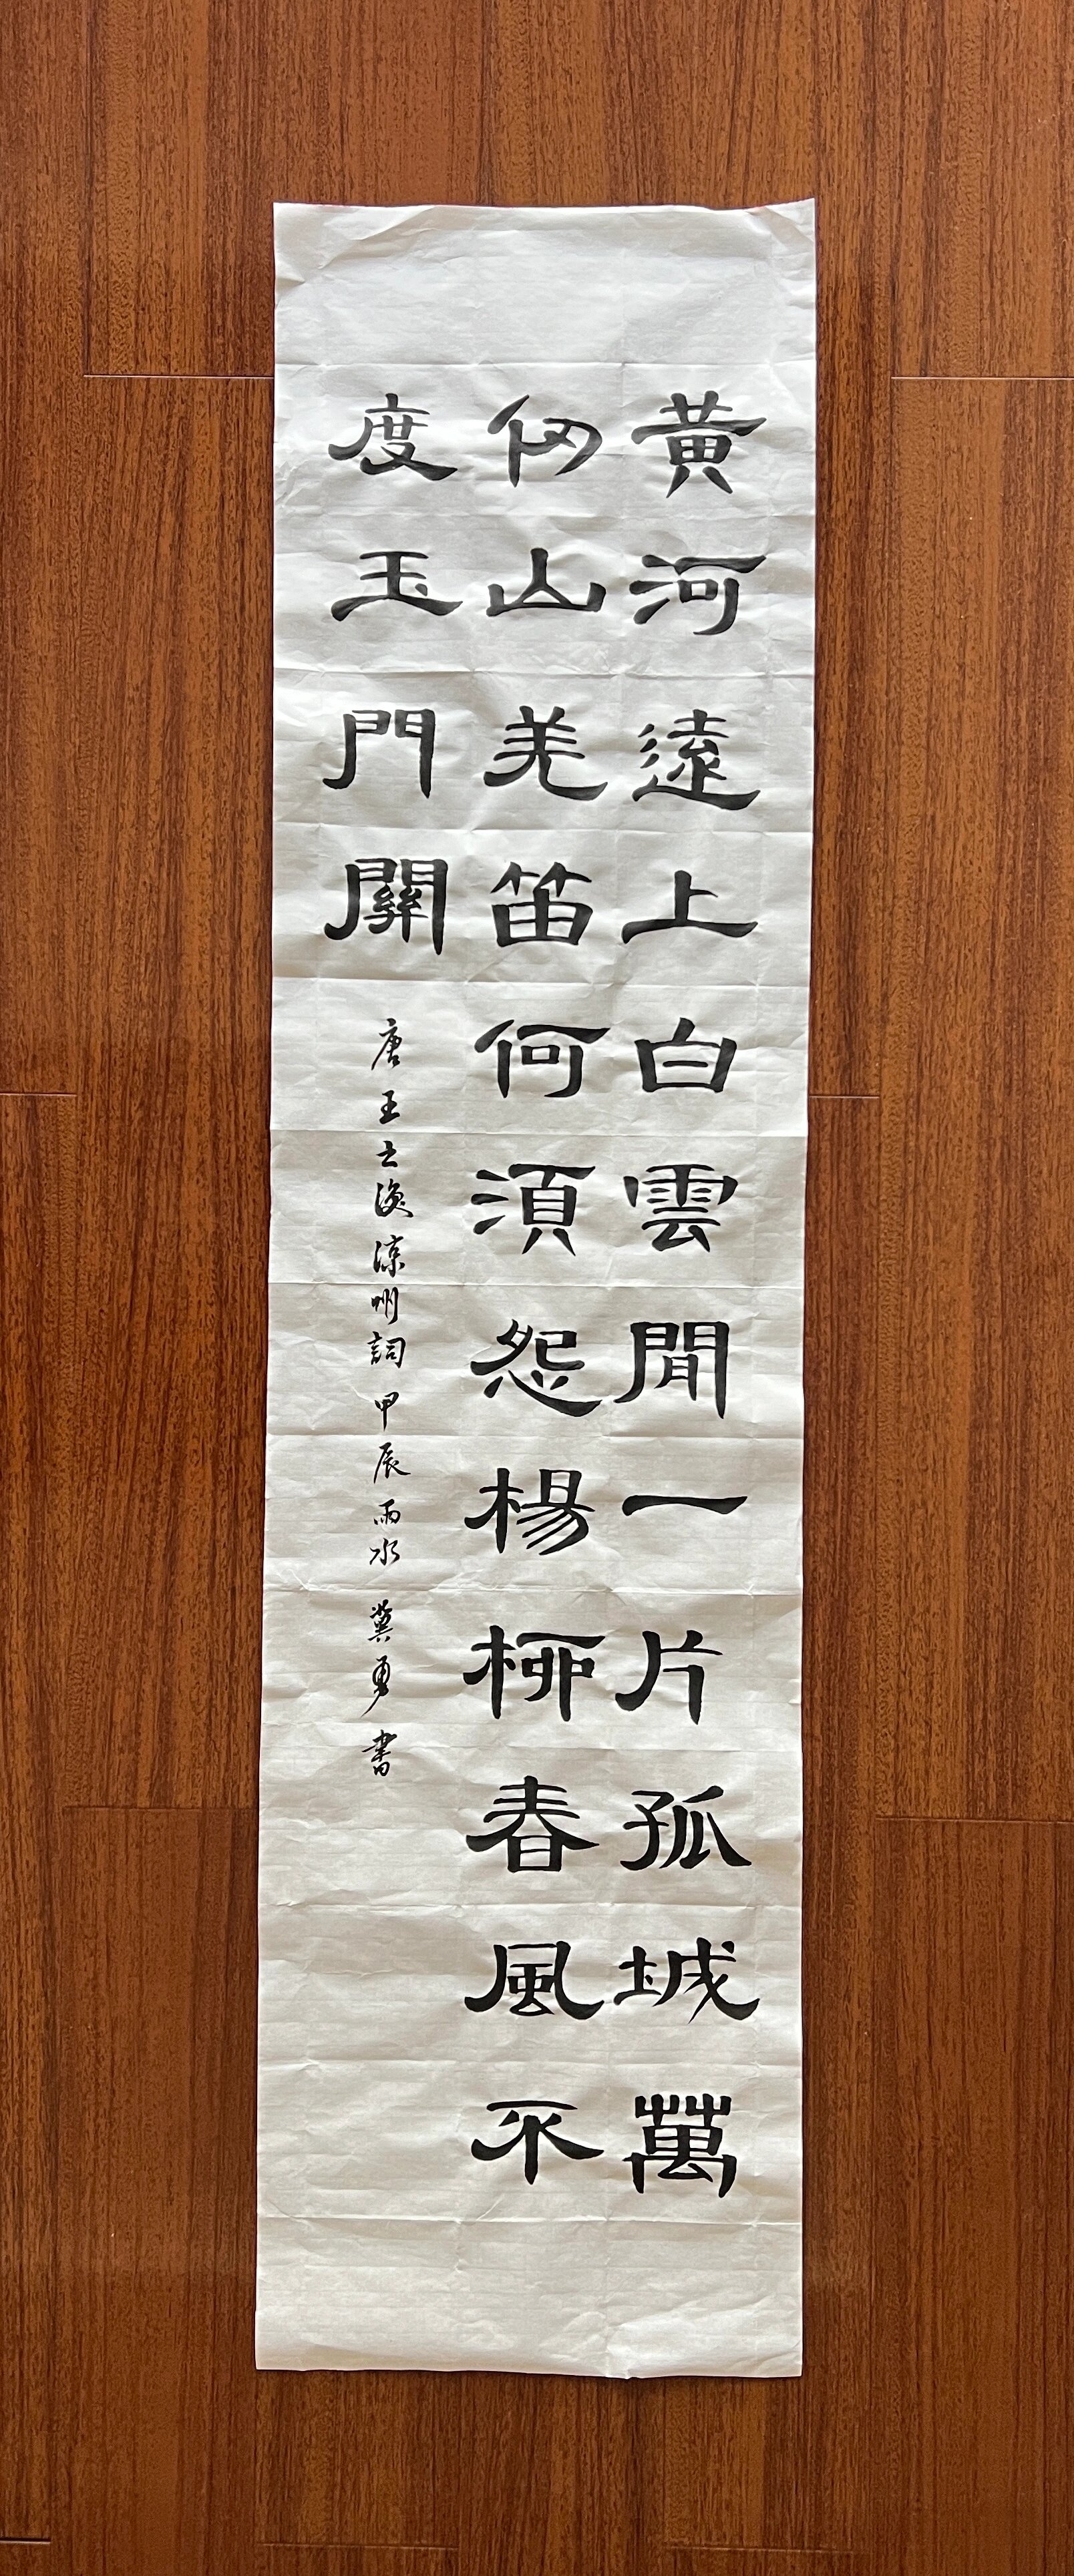 黃河遠上白雲間一片孤城萬
仞山羌笛何須怨楊柳春風不
度玉門關
唐王之渙涼州詞甲辰雨水冀勇書